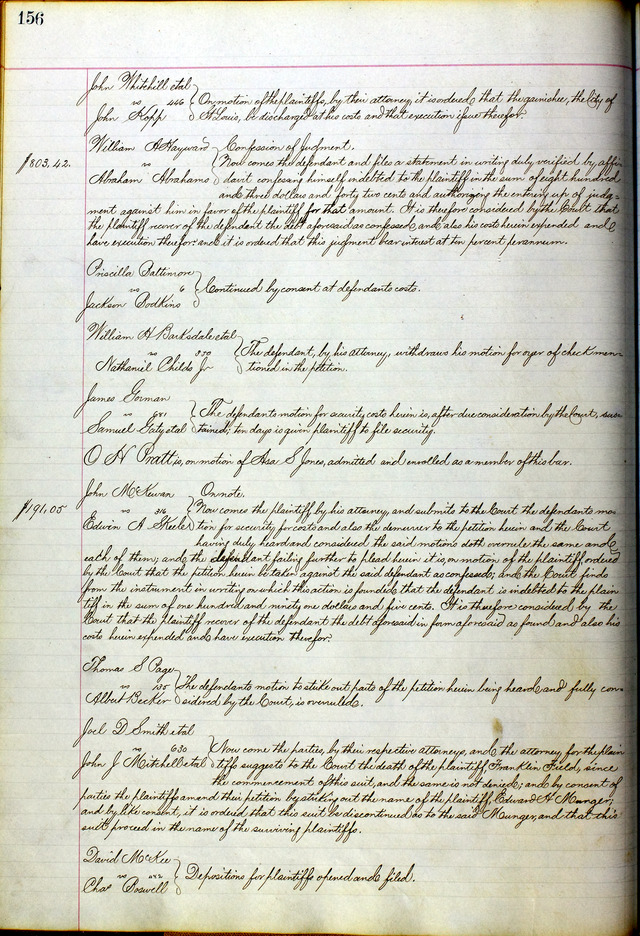 156
John Whitehill et al
vs 466 On motion of the plaintiffs, by their attorney, it is ordered that the garnishee, the City of
John Kopp St Louis, be discharged at his costs and that execution issue therefor.
William A Hayward Confession of Judgment.
$803.42. vs Now comes the defendant and files a statement in writing duly verified by affi-
Abraham Abrahams davit confessing himself indebted to the plaintiff in the sum of eight hundred
and three dollars and forty two cents and authorizing the entering up of judg-
ment against him in favor of the plaintiff for that amount. It is therefore considered by the Court that
the plaintiff recover of the defendant the debt aforesaid as confessed, and also his costs herein expended and
have execution therefor: and it is ordered that this judgment bear interest at ten percent per annum.
Priscilla Baltimore
vs 6 Continued by consent at defendants costs.
Jackson Bodkins
William H Barksdale et al
vs The defendant, by his attorney, withdraws his motion for oyer of check men-
Nathaniel Childs Jr tioned in the petition.
James Gorman
vs 681 The defendants motion for security costs herein is, after due consideration by the Court, sus-
Samuel Gaty et al tained; ten days is given plaintiff to file security.
O H Pratt is, on motion of Asa S Jones, admitted and enrolled as a member of this bar.
John McKewan On note.
$191.05 vs 316 Now comes the plaintiff by his attorney, and submits to the Court the defendants mo-
Edwin A Skeele tion for security for costs and also the demurrer to the petition herein and the Court
having duly heard and considered the said motions doth overrule the same and
each of them; and the defendant failing further to plead herein it is, on motion of the plaintiff, ordered
by the Court that the petition herein be taken against the said defendant as confessed; and the Court finds
from the instrument in writing on which this action is founded that the defendant is indebted to the plain
tiff in the sum of one hundred and ninety one dollars and five cents. It is therefore considered by the
Court that the plaintiff recover of the defendant the debt aforesaid in form aforesaid as found and also his
costs herein expended and have execution therefor.
Thomas S Page
vs 135 The defendants motion to strike out parts of the petition herein being heard and fully con-
Albert Becker sidered by the Court, is overruled.
Joel D Smith et al
vs 630 Now come the parties, by their respective attorneys, and the attorney for the plain
John J Mitchell et al tiffs suggests to the Court the death of the plaintiff, Franklin Field, since
the commencement of this suit, and the same is not denied; and by consent of
parties the plaintiffs amend their petition by striking out the name of the plaintiff, Edward H Munger;
and by like consent, it is ordered that this suit be discontinued as to the said Munger, and that this
suit proceed in the name of the surviving plaintiffs.
David McKee
vs Depositions for plaintiffs opened and filed.
Chas Boswell